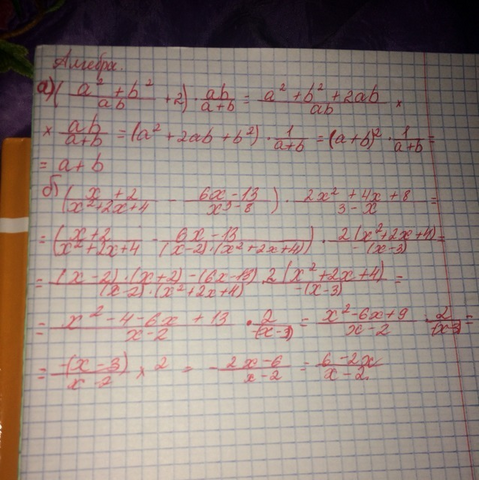 Алгебра.
а) ( (a² + b²)/(ab) + 2) · (ab)/(a+b) = (a² + b² + 2ab)/(ab) ×
× (ab)/(a+b) = (a² + 2ab + b²) · 1/(a+b) = (a + b)² · 1/(a+b) =
= a + b
б) ( (x + 2)/(x²+2x+4) − (6x − 13)/(x³ − 8) ) · (2x² + 4x + 8)/(3 − x) =
= ( (x+2)/(x²+2x+4) − (6x − 13)/((x−2)·(x²+2x+4)) ) · (2(x²+2x+4))/(−(x−3)) =
= ((x − 2)·(x+2) − (6x − 13))/((x−2)·(x²+2x+4)) · (2(x²+2x+4))/(−(x−3)) =
= (x² − 4 − 6x + 13)/(x−2) · 2/(−(x−3)) = (x² − 6x + 9)/(x − 2) · 2/(−(x−3)) =
= (−(x − 3))/(x − 2) × 2 = − (2x − 6)/(x − 2) = (6 − 2x)/(x − 2).